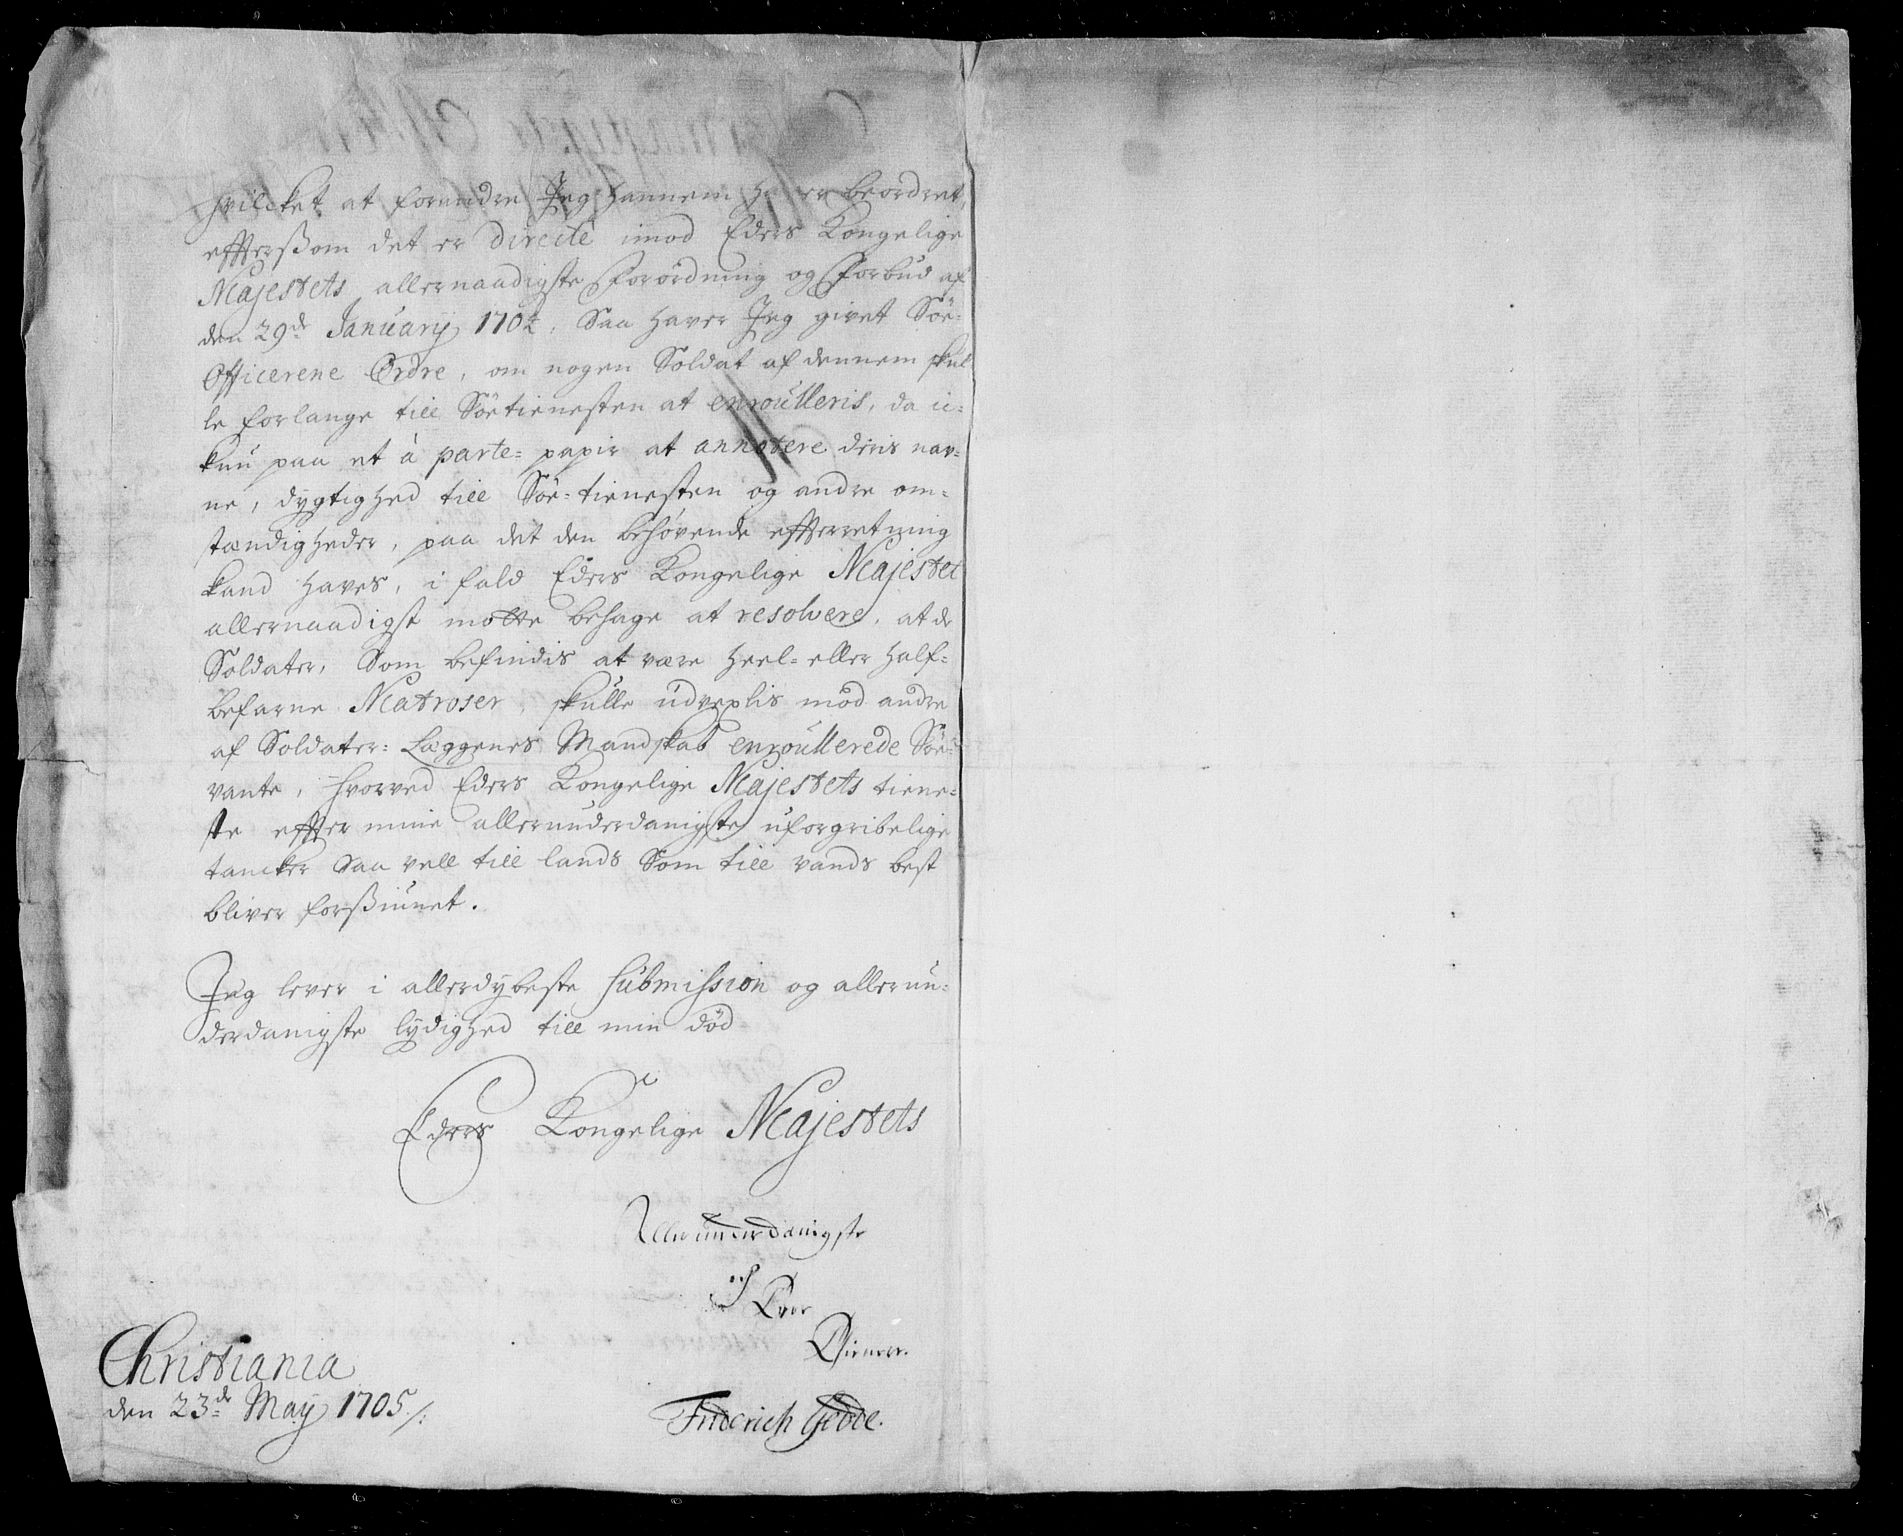 hvilcket at forandre Jeg hannem haver beordret,
efftersom det er directè imod Eders Kongelige
Majestets allernaadigste Forordning og Forbud af
den 29de Januarij 1704. Saa haver Jeg givet Söe-
Officerene Ordre, om nogen Soldat af dennem skul
le forlange till Söetienesten at enroulleris, da ii-
kun paa et à parte= papir at annotere deris nav-
ne, dygtighed till Söe-tienesten og andre om-
stændigheder, paa det den behøvende effterretning
kand haves, i fald Eders Kongelige Majestet
allernaadigst motte behage at resolvere, at de
Soldater, Som befindis at være heel- eller half-
befarne Matroser, skulle udvexlis mod andre
af Soldater= Læggenes Mandskab enroullerede Söe-
vante, hvorved Eders Kongelige Majestets tiene-
ste effter mine allerunderdanigste uforgribelige
tancker Saa vell till lands Som till vands best
bliver forsiunet.
Jeg lever i allerdybeste Submission og allerun-
derdanigste lydighed till min död
Eders Kongelige Majestets
Allerunderdanigste
och Troe
Tiener.
Christiania
den 23de May 1705/:
Friderich Gedde.